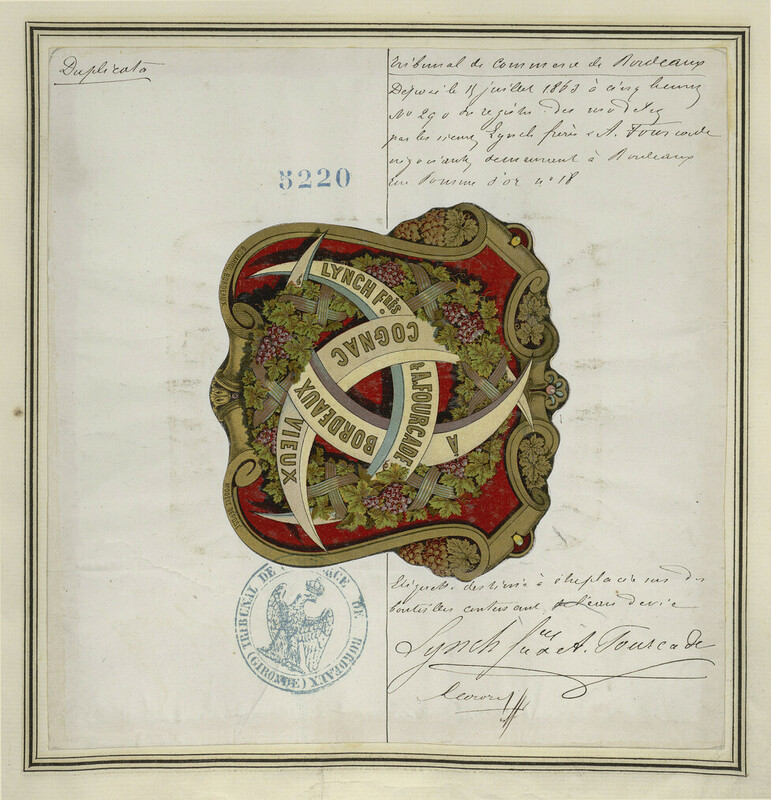 Duplicata
Tribunal de Commerce de Bordeaux
Déposé le 15 juillet 1863 à cinq heures
No 290 du registre des modèles
par les sieurs Lynch frères & A. Fourcade
négociants demeurant à Bordeaux
rue Pomme d'or no 18
5220
LYNCH Frès
COGNAC
& A. FOURCADE
A
BORDEAUX
VIEUX
TRIBUNAL DE COMMERCE DE BORDEAUX
(GIRONDE)
Etiquette destinée à être placée sur des
bouteilles contenant eau de vie
Lynch frères & A. Fourcade